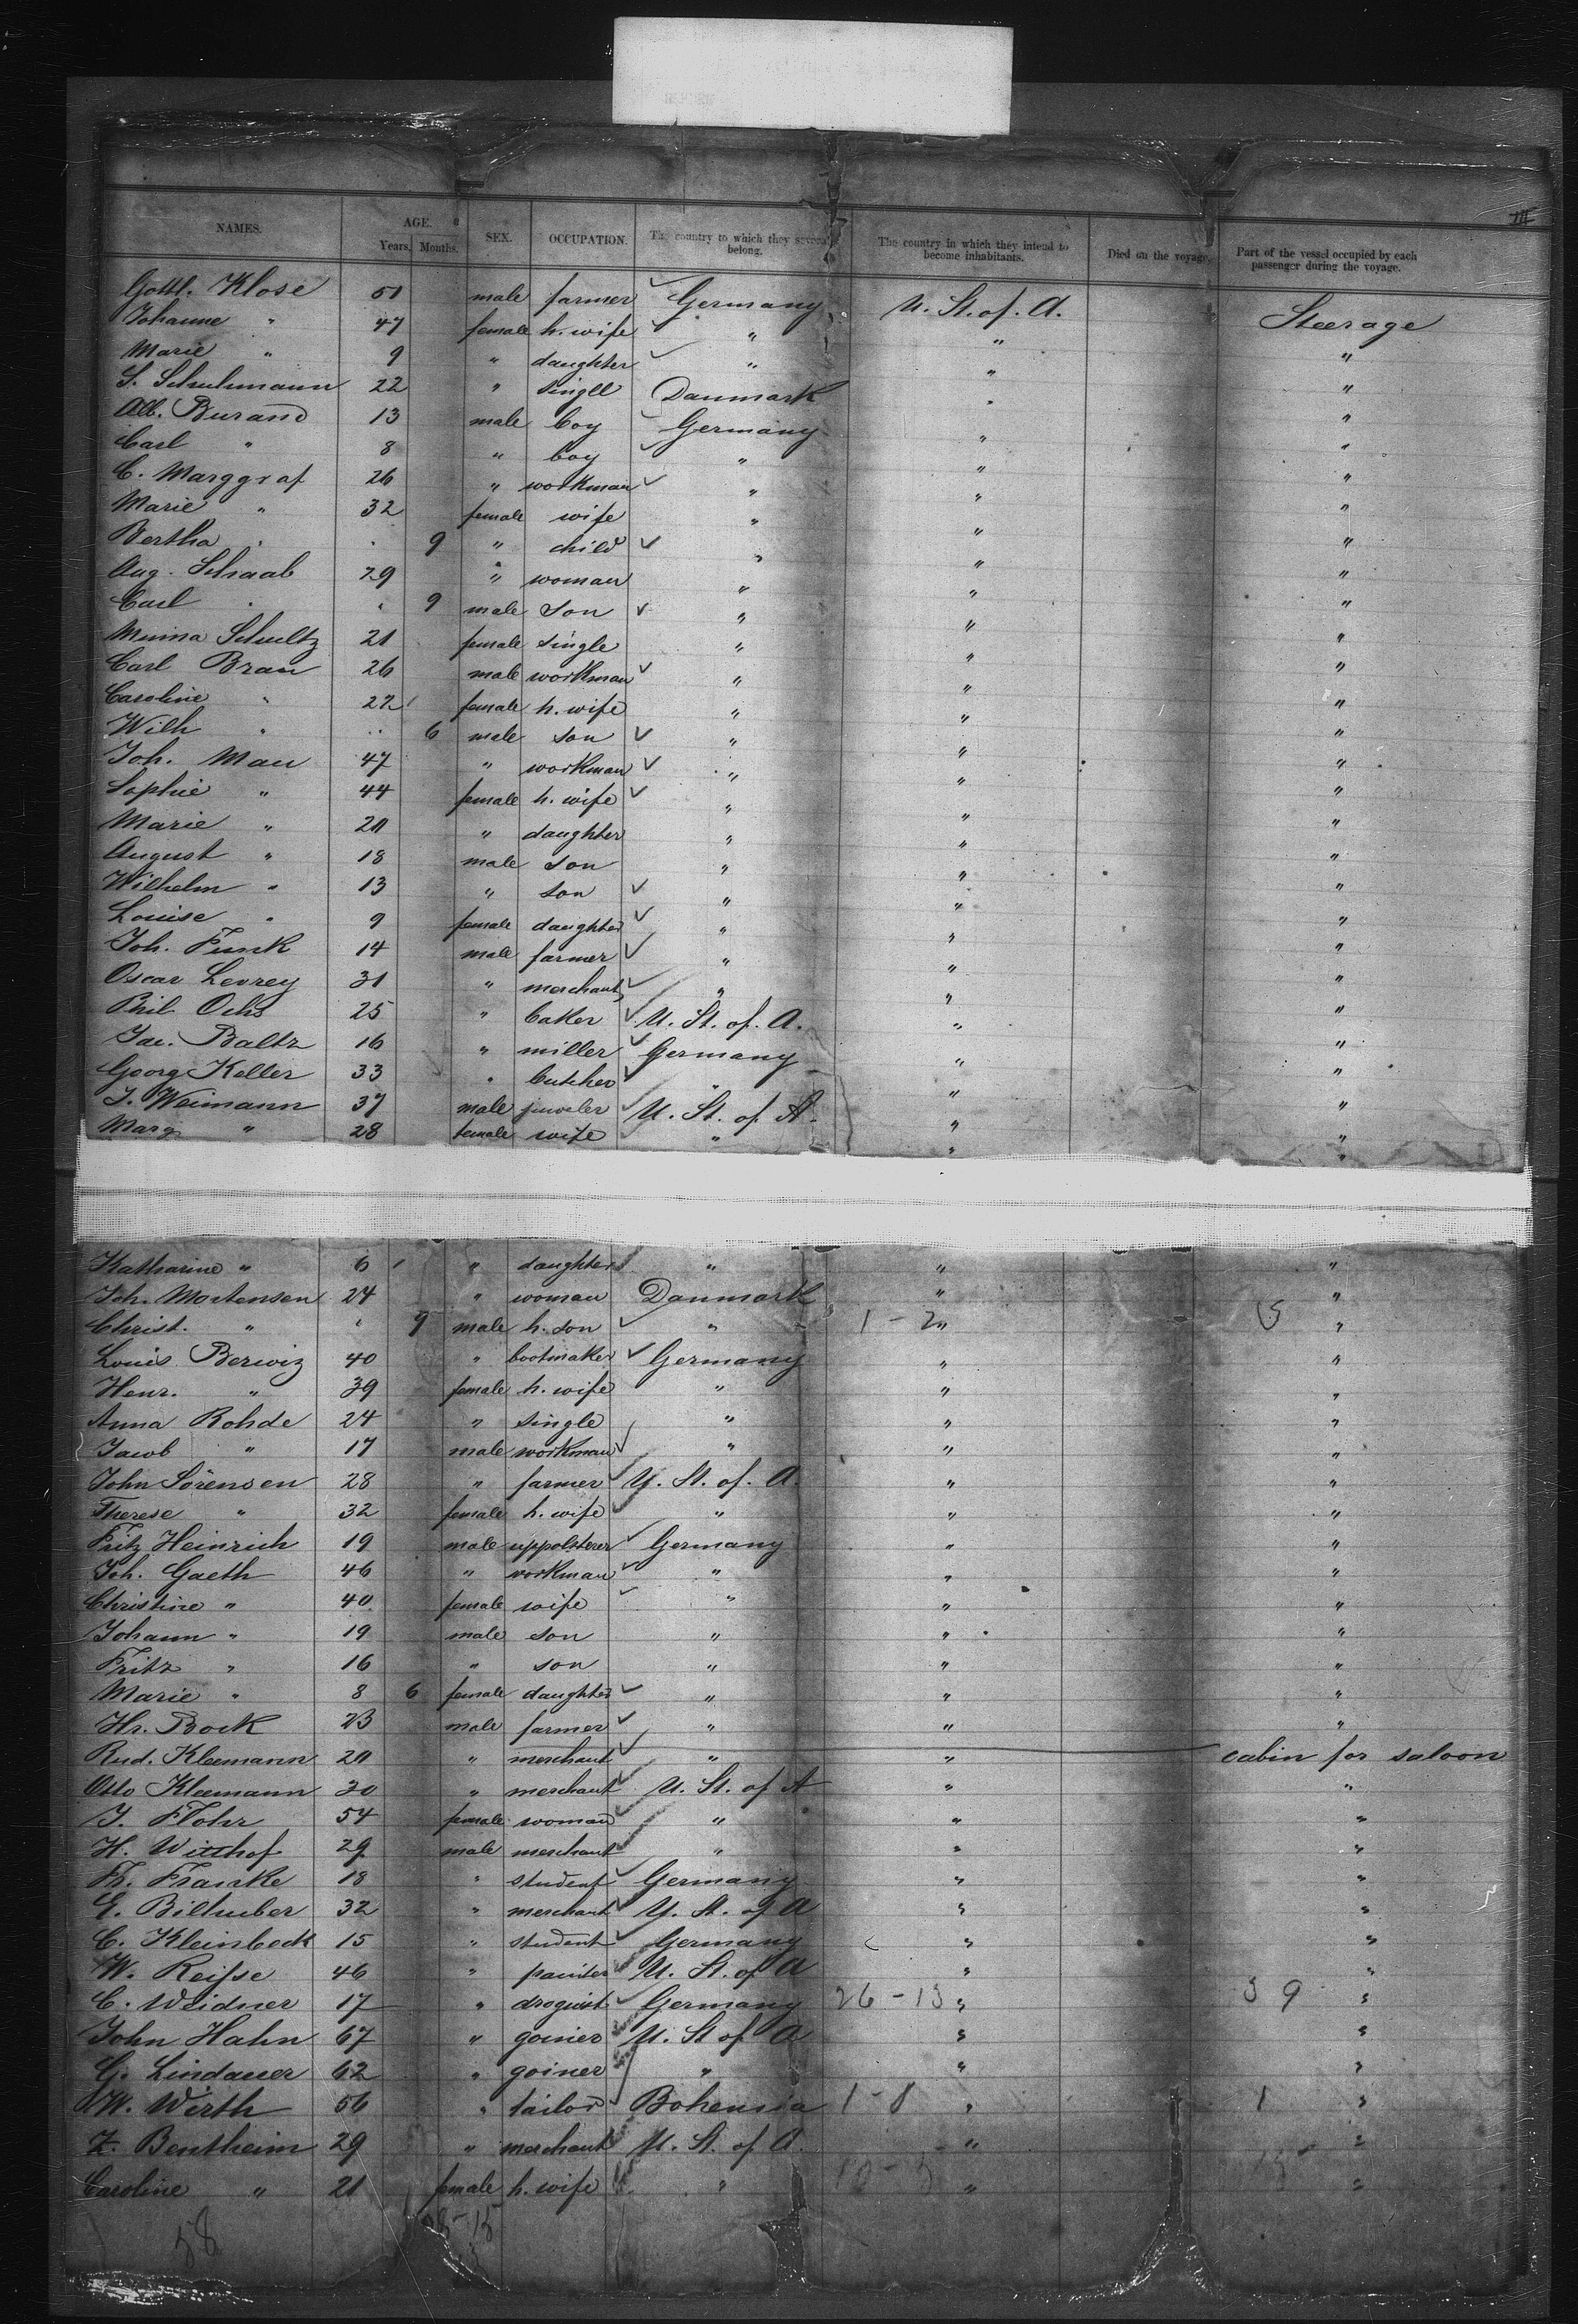 NAMES. AGE. Years. Months. SEX. OCCUPATION. The country to which they severally belong. The country in which they intend to become inhabitants. Died on the voyage. Part of the vessel occupied by each passenger during the voyage.
Gottl. Klose 51 male farmer Germany U. St. of. A. Steerage
Johanne " 47 female h. wife " " "
Marie " 9 " daughter " " "
S. Schuhmann 22 " singll Danmark " "
Alb. Burand 13 male boy Germany " "
Carl " 8 " boy " " "
C. Marggraf 26 " workman " " "
Marie " 32 female wife " " "
Bertha " " 9 " child " " "
Aug. Schaab 29 " woman " " "
Carl " " 9 male son " " "
Minna Schultz 21 female single " " "
Carl Brau 26 male workman " " "
Caroline " 22 female h. wife " " "
Wilh " " 6 male son " " "
Joh. Mau 47 " workman " " "
Sophie " 44 female h. wife " " "
Marie " 20 " daughter " " "
August " 18 male son " " "
Wilhelm " 13 " son " " "
Louise " 9 female daughter " " "
Joh. Funk 14 male farmer " " "
Oscar Levrey 31 " merchant " " "
Phil. Ochs 25 " baker U. St. of. A. " "
Jac. Baltz 16 " miller Germany " "
Georg Keller 33 " butcher " " "
J. Weimann 37 male juweler U. St. of A. " "
Marg " 28 female wife " " "
Katharine " 6 " daughter " " "
Joh. Mortensen 24 " woman Danmark " "
Christ. " " 9 male h. son " 1 - 2 " "
Louis Berwiz 40 " bootmaker Germany " "
Henr. " 39 female h. wife " " "
Anna Rohde 24 " single " " "
Jacob " 17 male workman " " "
John Sörensen 28 " farmer U. St. of. A. " "
Therese " 32 female h. wife " " "
Fritz Heinrich 19 male uppolsterer Germany " "
Joh. Gaeth 46 " workman " " "
Christine " 40 female wife " " "
Johann " 19 male son " " "
Fritz " 16 " son " " "
Marie " 8 6 female daughter " " "
Hr. Bock 23 male farmer " " "
Rud. Kleemann 20 " merchant " " cabin for saloon
Otto Kleemann 30 " merchant U. St. of A " "
J. Flohr 54 female woman " " "
H. Witthof 29 male merchant " " "
Fr. Franke 18 " student Germany " "
E. Bilhuber 32 " merchant U. St. of A " "
C. Kleinbeck 15 " student Germany " "
W. Reifse 46 " painter U. St. of A " "
C. Weidner 17 " droguist Germany 26 - 13 " 3 9 "
John Hahn 67 " goiner U. St of A " "
G. Lindauer 62 " goiner " " "
W. Wirth 56 " tailor Bohemia 1 - 8 " 1 "
Z. Bentheim 29 " merchant U. St. of A. " "
Caroline " 21 female h. wife " " "
58